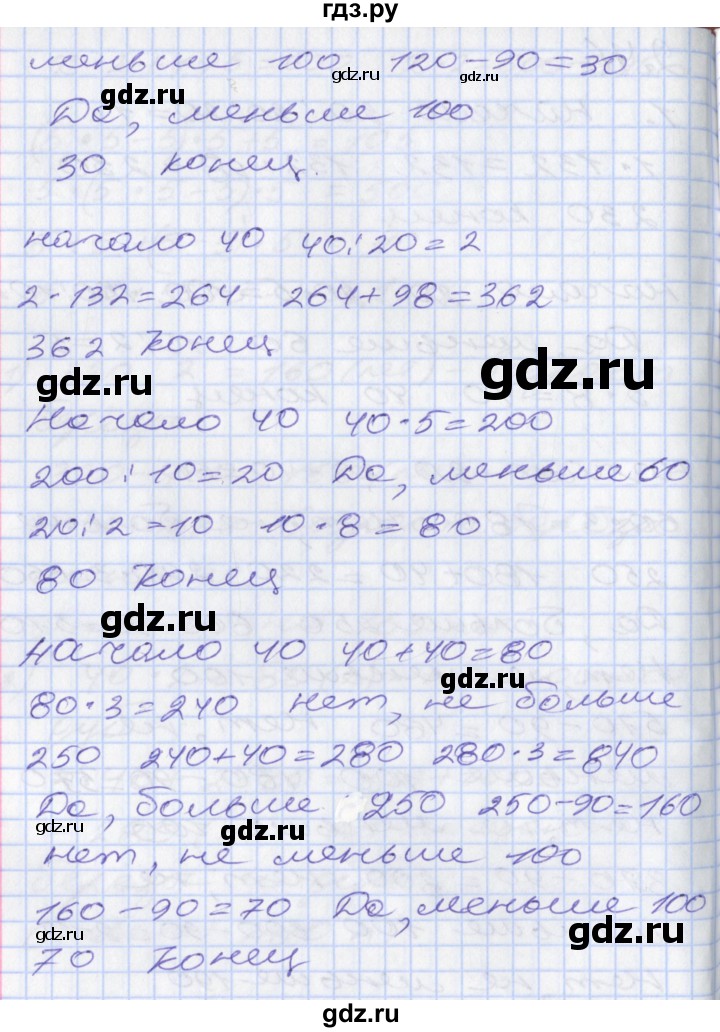 гдз.ру
меньше 100 120-90=30
gdz.ru
gdz.ru
gdz.ru
Да, меньше 100
30 конец.
начало 40 40:20=2
2·132=264 264+98=362
362 конец
gdz.ru
gdz.ru
Начало 40 40·5=200
200:10=20 Да, меньше 60
20:2=10 10·8=80
80 конец
gdz.ru
начало 40 40+40=80
gdz.ru
80·3=240 нет, не больше
250 240+40=280 280·3=840
Да, больше 250 250-90=160
gdz.ru
gdz.ru
gdz.ru
нет, не меньше 100
160-90=70 Да, меньше 100
gdz.ru
gdz.ru
70 конец
gdz.ru